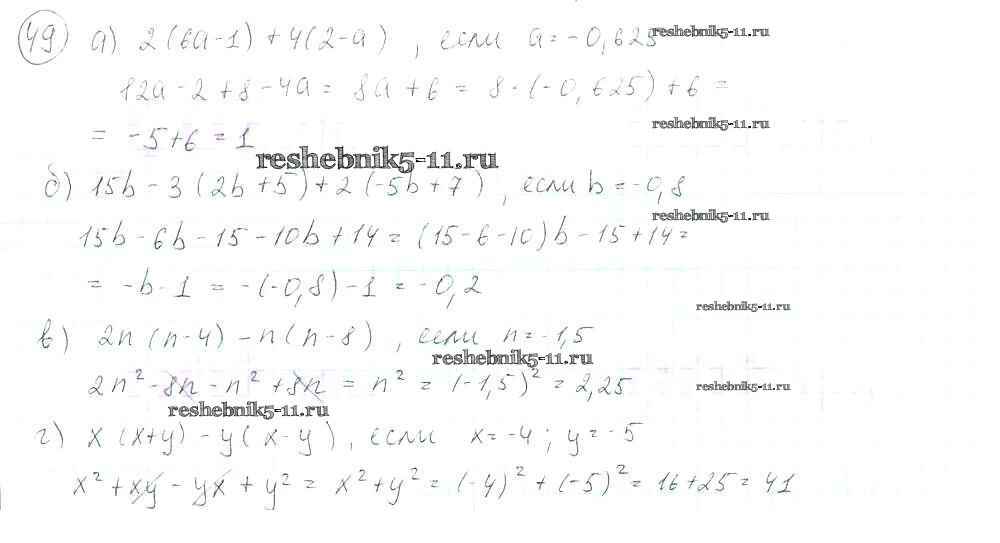 49) а) 2(6a-1)+4(2-a), если a=-0,625 reshebnik5-11.ru
12a-2+8-4a = 8a+6 = 8·(-0,625)+6 =
reshebnik5-11.ru
= -5+6 = 1
reshebnik5-11.ru
б) 15b-3(2b+5)+2(-5b+7), если b=-0,8
reshebnik5-11.ru
15b-6b-15-10b+14 = (15-6-10)b-15+14 =
= -b-1 = -(-0,8)-1 = -0,2
reshebnik5-11.ru
в) 2n(n-4)-n(n-8), если n=-1,5
reshebnik5-11.ru
2n²-8n-n²+8n = n² = (-1,5)² = 2,25
reshebnik5-11.ru
reshebnik5-11.ru
г) x(x+y)-y(x-y), если x=-4; y=-5
x²+xy-yx+y² = x²+y² = (-4)²+(-5)² = 16+25 = 41